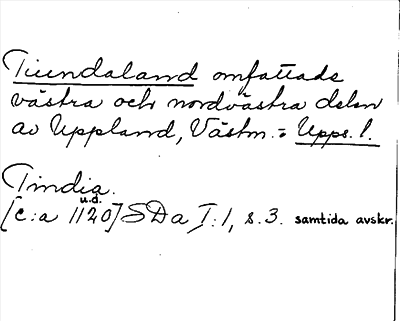 Tiundaland omfattade
västra och nordvästra delen
av Uppland, Västm.- o Upps. l.
Tindia.
u.d.
[c:a 1120] SDa I:1, s. 3. samtida avskr.